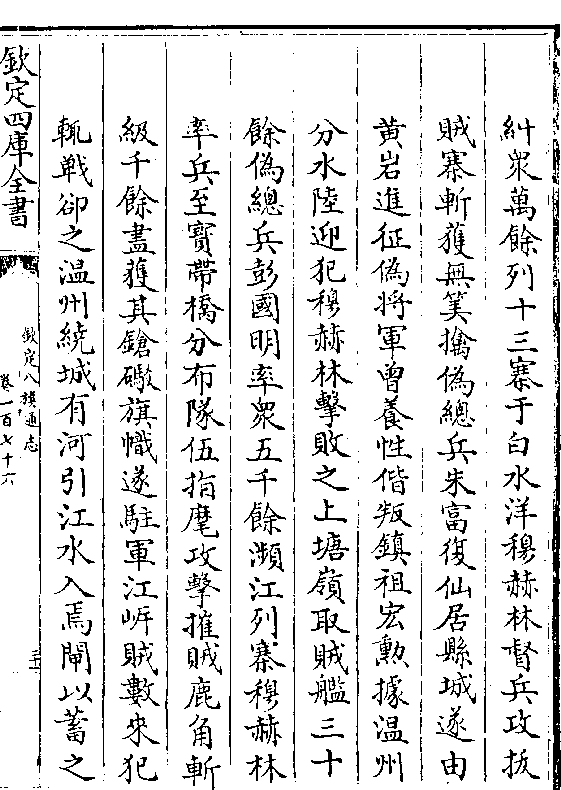 糾眾萬餘列十三寨于白水洋穆赫林督兵攻拔
賊寨斬獲無筭擒偽總兵朱富復仙居縣城遂由
黄岩進征偽將軍曾養性偕叛鎮祖宏勲據温州
分水陸迎犯穆赫林擊敗之上塘嶺取賊艦三十
餘偽總兵彭國明率眾五千餘瀕江列寨穆赫林
率兵至寶帶橋分布隊伍指麾攻擊摧賊鹿角斬
級千餘盡獲其鎗礮旗幟遂駐軍江岍賊數来犯
輒戰卻之温州繞城有河引江水入焉閘以蓄之
欽定四庫全書
欽定八旗通志
卷一百七十六